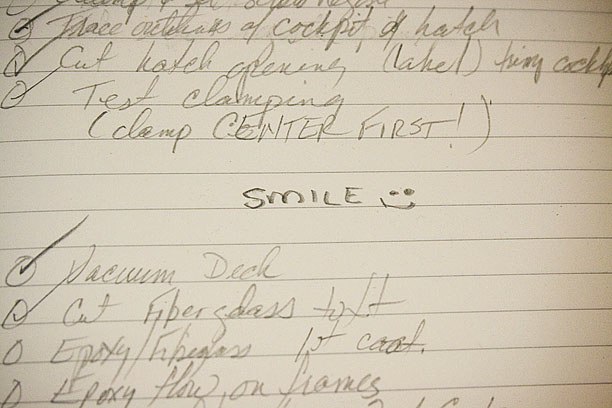 Trace outlines of cockpit & hatch
Cut hatch opening (label) trim cockp
Test clamping
(clamp CENTER FIRST!)
SMILE
Vacuum Deck
Cut Fiberglass to fit
Epoxy/Fiberglass 1st coat.
Epoxy flow on frames